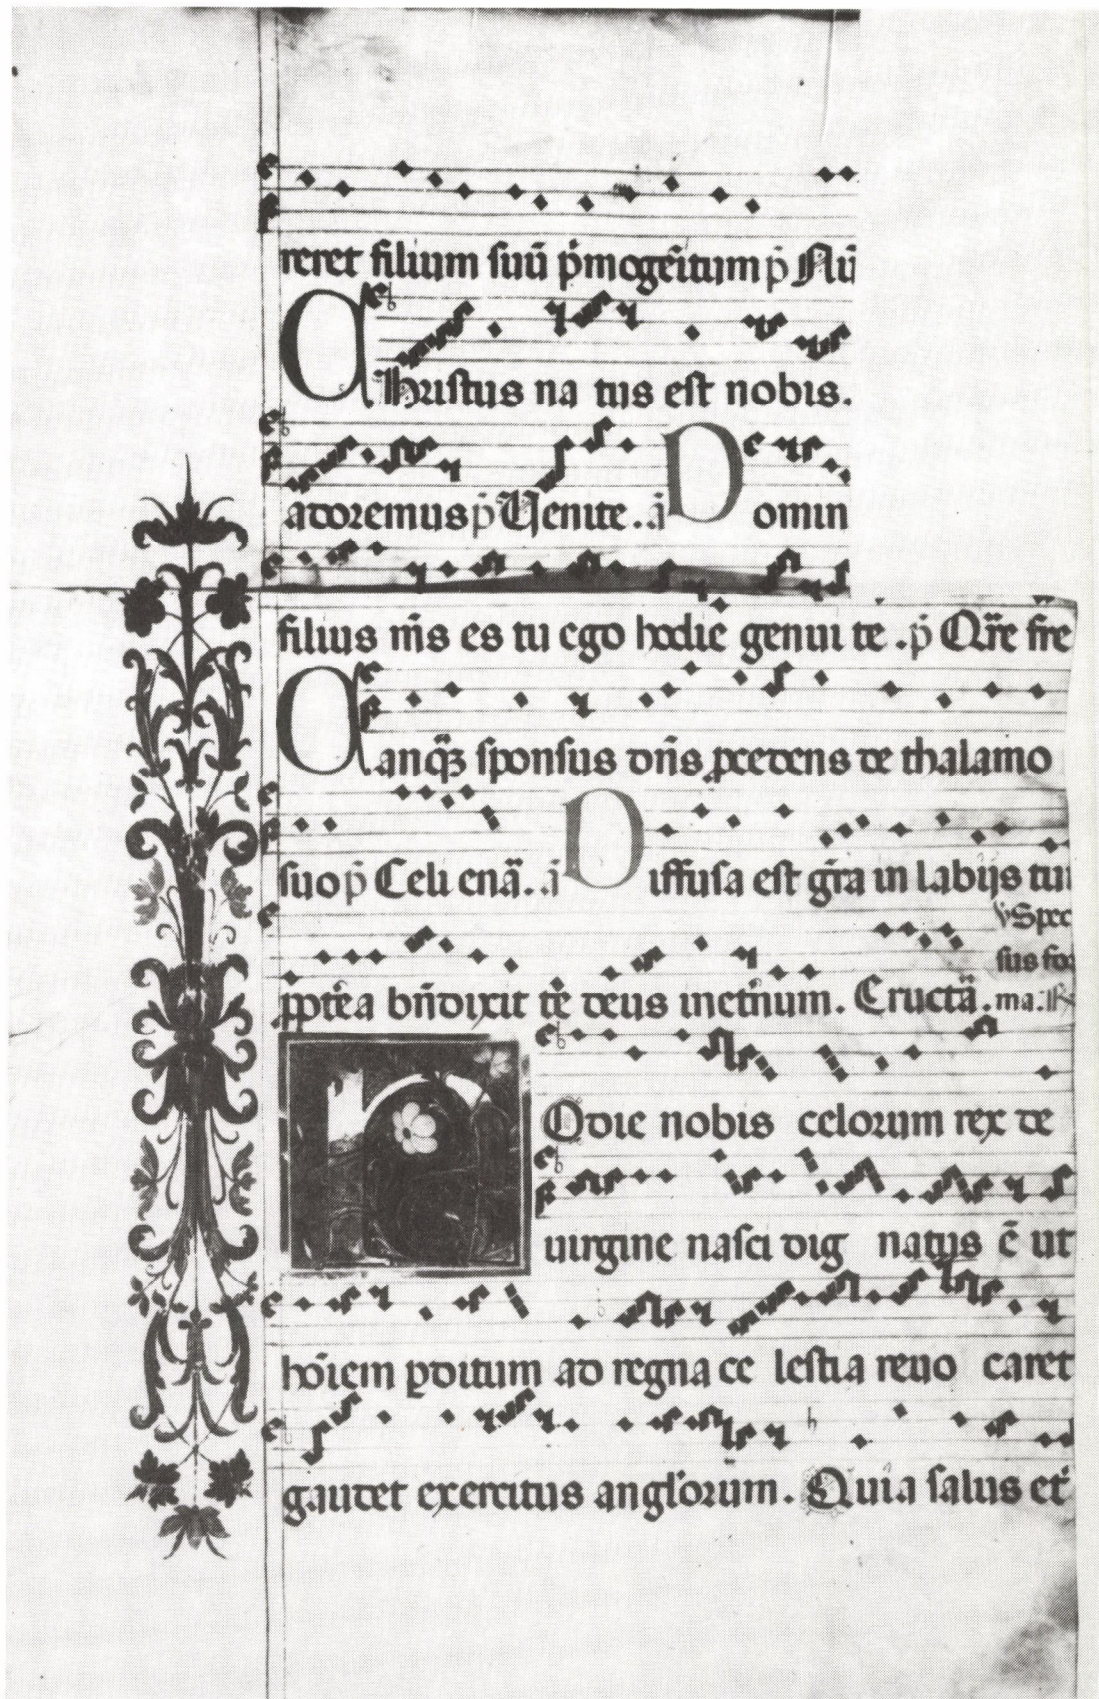 reret filium suū p̄mogēitum p̄ Nū
Christus na tus est nobis.
adoremus p̄ Uenite. ā Domin
filius m̄s es tu ego hodie genui te. p̄ Qr̄e fre
Tanq̄ꝫ sponsus dn̄s ꝓcedens de thalamo
suo p̄ Celi enā. ā Diffusa est gr̄a in labijs tui
ꝓpt̄ea bn̄dixit te deus inet̄num. Eructā.
℣ Spec
sus for
ma. ℟
Hodie nobis celorum rex de
uirgine nasci dig natus ē ut
hoīem ꝑditum ad regna ce lestia reuo caret
gaudet exercitus angl'orum. Quia salus et